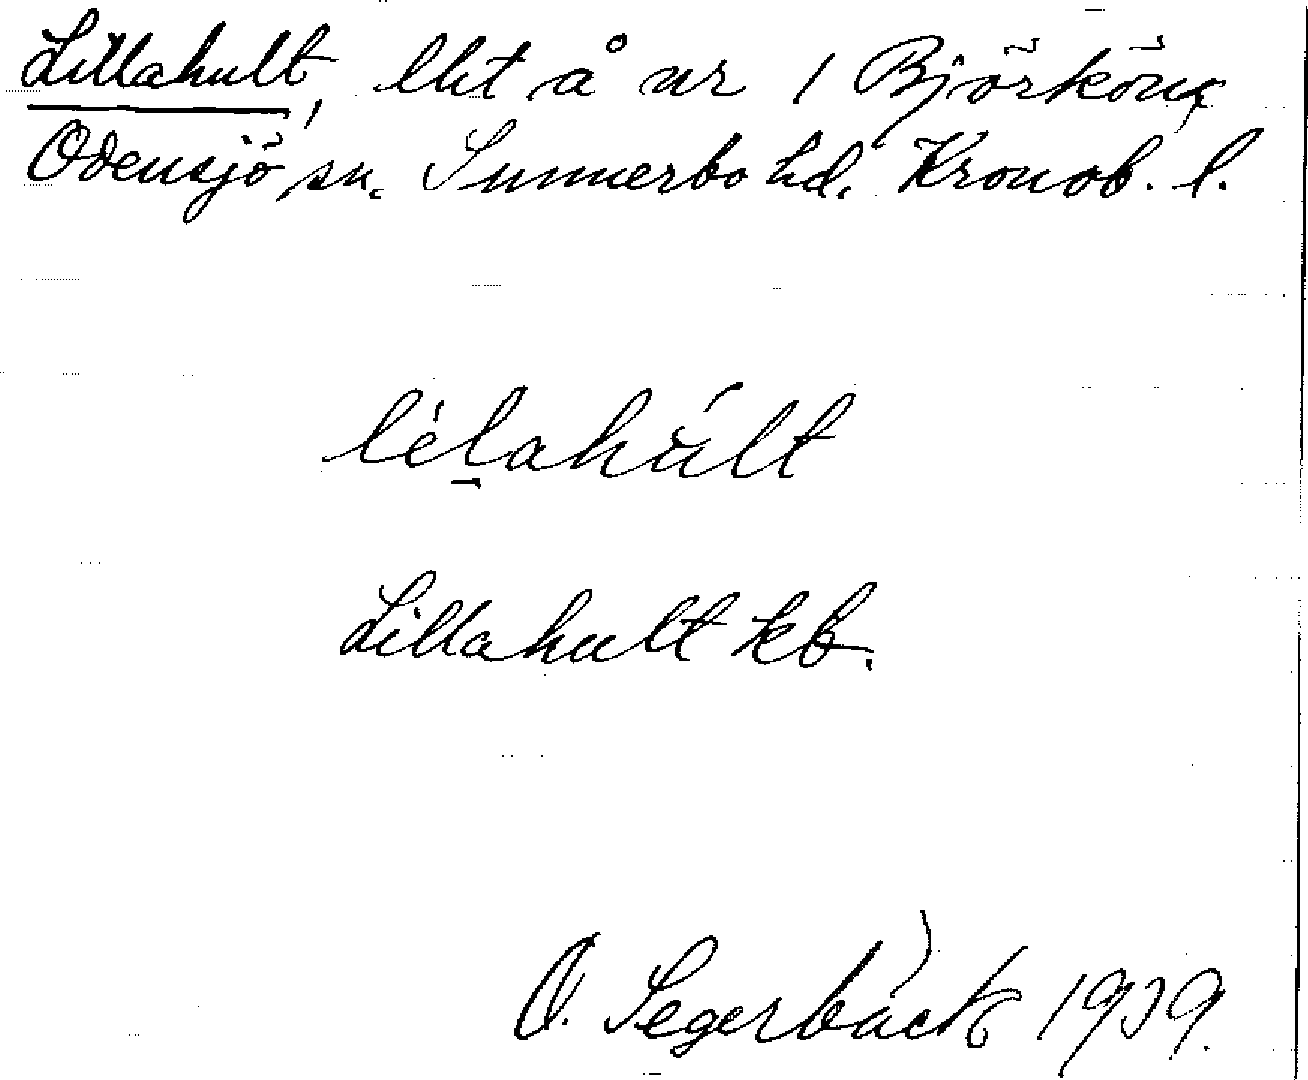 Lillahult, lht å nr 1 Björköna
Odensjö sn. Sunnerbo hd. Kronob. l.
lèlahúlt
Lillahult kb.
O. Segerbäck 1939.